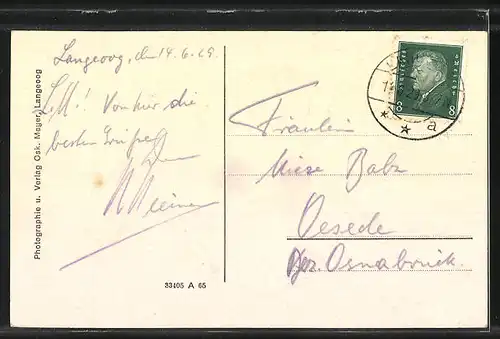 Langeoog, den 14.6.29
L. M! Von hier die
besten Grüße
Fräulein
Miese Babz
Oesede
Bez. Osnabrück.
Photographie u. Verlag Osk. Meyer, Langeoog
33405 A 65
Deutsches Reich
8 8
* * a